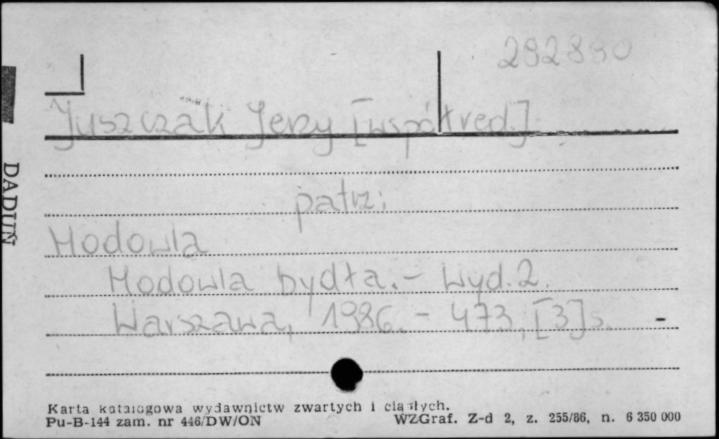 292890
Juszczak Jerzy [współred.]
patrz:
Hodowla
Hodowla bydła. – Wyd. 2.
Warszawa, 1986. – 473, [3] s. –
DADUŃ
Karta katalogowa wydawnictw zwartych i ciągłych.
Pu-B-144 zam. nr 446/DW/ON
WZGraf. Z-d 2, z. 255/86, n. 6 350 000